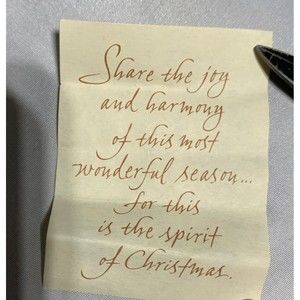 Share the joy
and harmony
of this most
wonderful season...
for this
is the spirit
of Christmas.